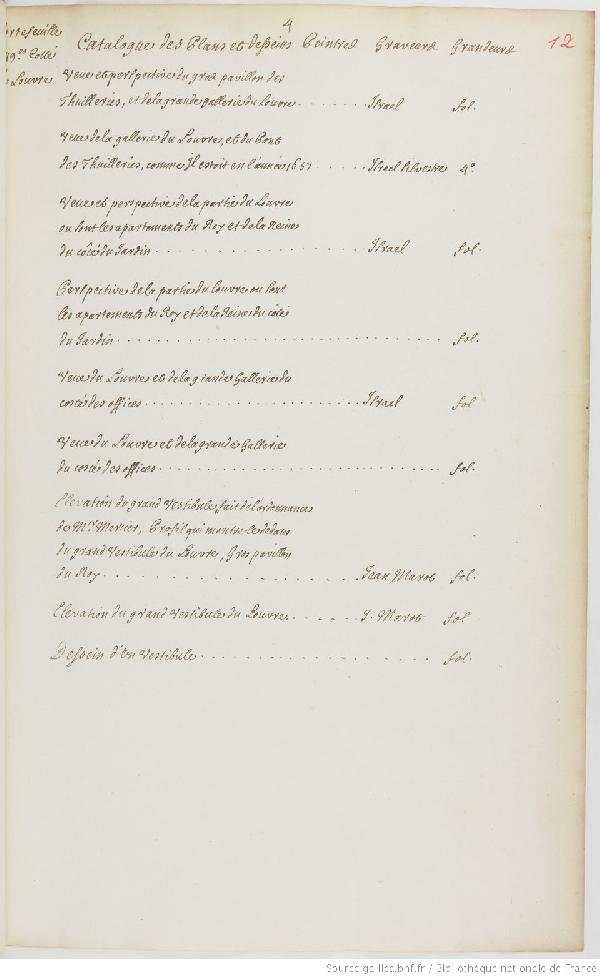 4
12
Catalogue des Plans et desseins Peintres Graveurs Grandeurs
Louvre
Veue et perspective du gros pavillon des
Thuilleries, et de la grande gallerie du Louvre . . . . . . . Israel fol.
Veue de la gallerie du Louvre, et du Pont
des Thuilleries, comme Il estoit en l'année 1657 . . . . . Israel Silvestre 4º
Veue et perspective de la partie du Louvre
ou sont les apartements du Roy et de la Reine
du côté du Jardin . . . . . . . . . . Israel fol.
Perspective de la partie du Louvre ou sont
les apartements du Roy et de la Reine du côté
du Jardin . . . . . . . . . . fol.
Veue du Louvre et de la grande Gallerie du
costé des offices . . . . . . . . . . Israel fol
Veue du Louvre et de la grande Gallerie
du costé des offices . . . . . . . . . . fol.
Elevation du grand Vestibule fait de l'ordonnance
de Mr. Mercier, Profil qui montre le dedans
du grand Vestibule du Louvre, Gros pavillon
du Roy . . . . . . . . . . Jean Marot fol.
Elevation du grand Vestibule du Louvre . . . . . . J. Marot fol
Dessein d'un Vestibule . . . . . . . . . . fol.
Source gallica.bnf.fr / Bibliothèque nationale de France